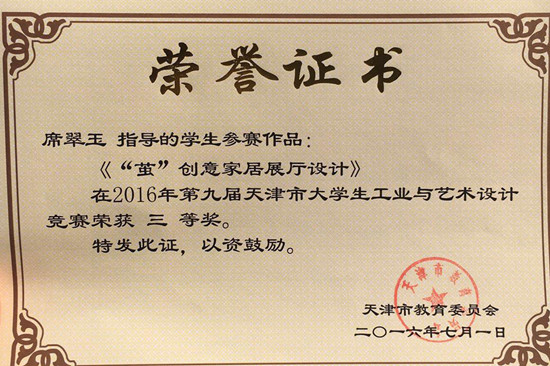 荣誉证书
席翠玉 指导的学生参赛作品：
《“茧”创意家居展厅设计》
在2016年第九届天津市大学生工业与艺术设计
竞赛荣获 三 等奖。
特发此证，以资鼓励。
天津市教育委员会
二〇一六年七月一日
天津市教育委员会